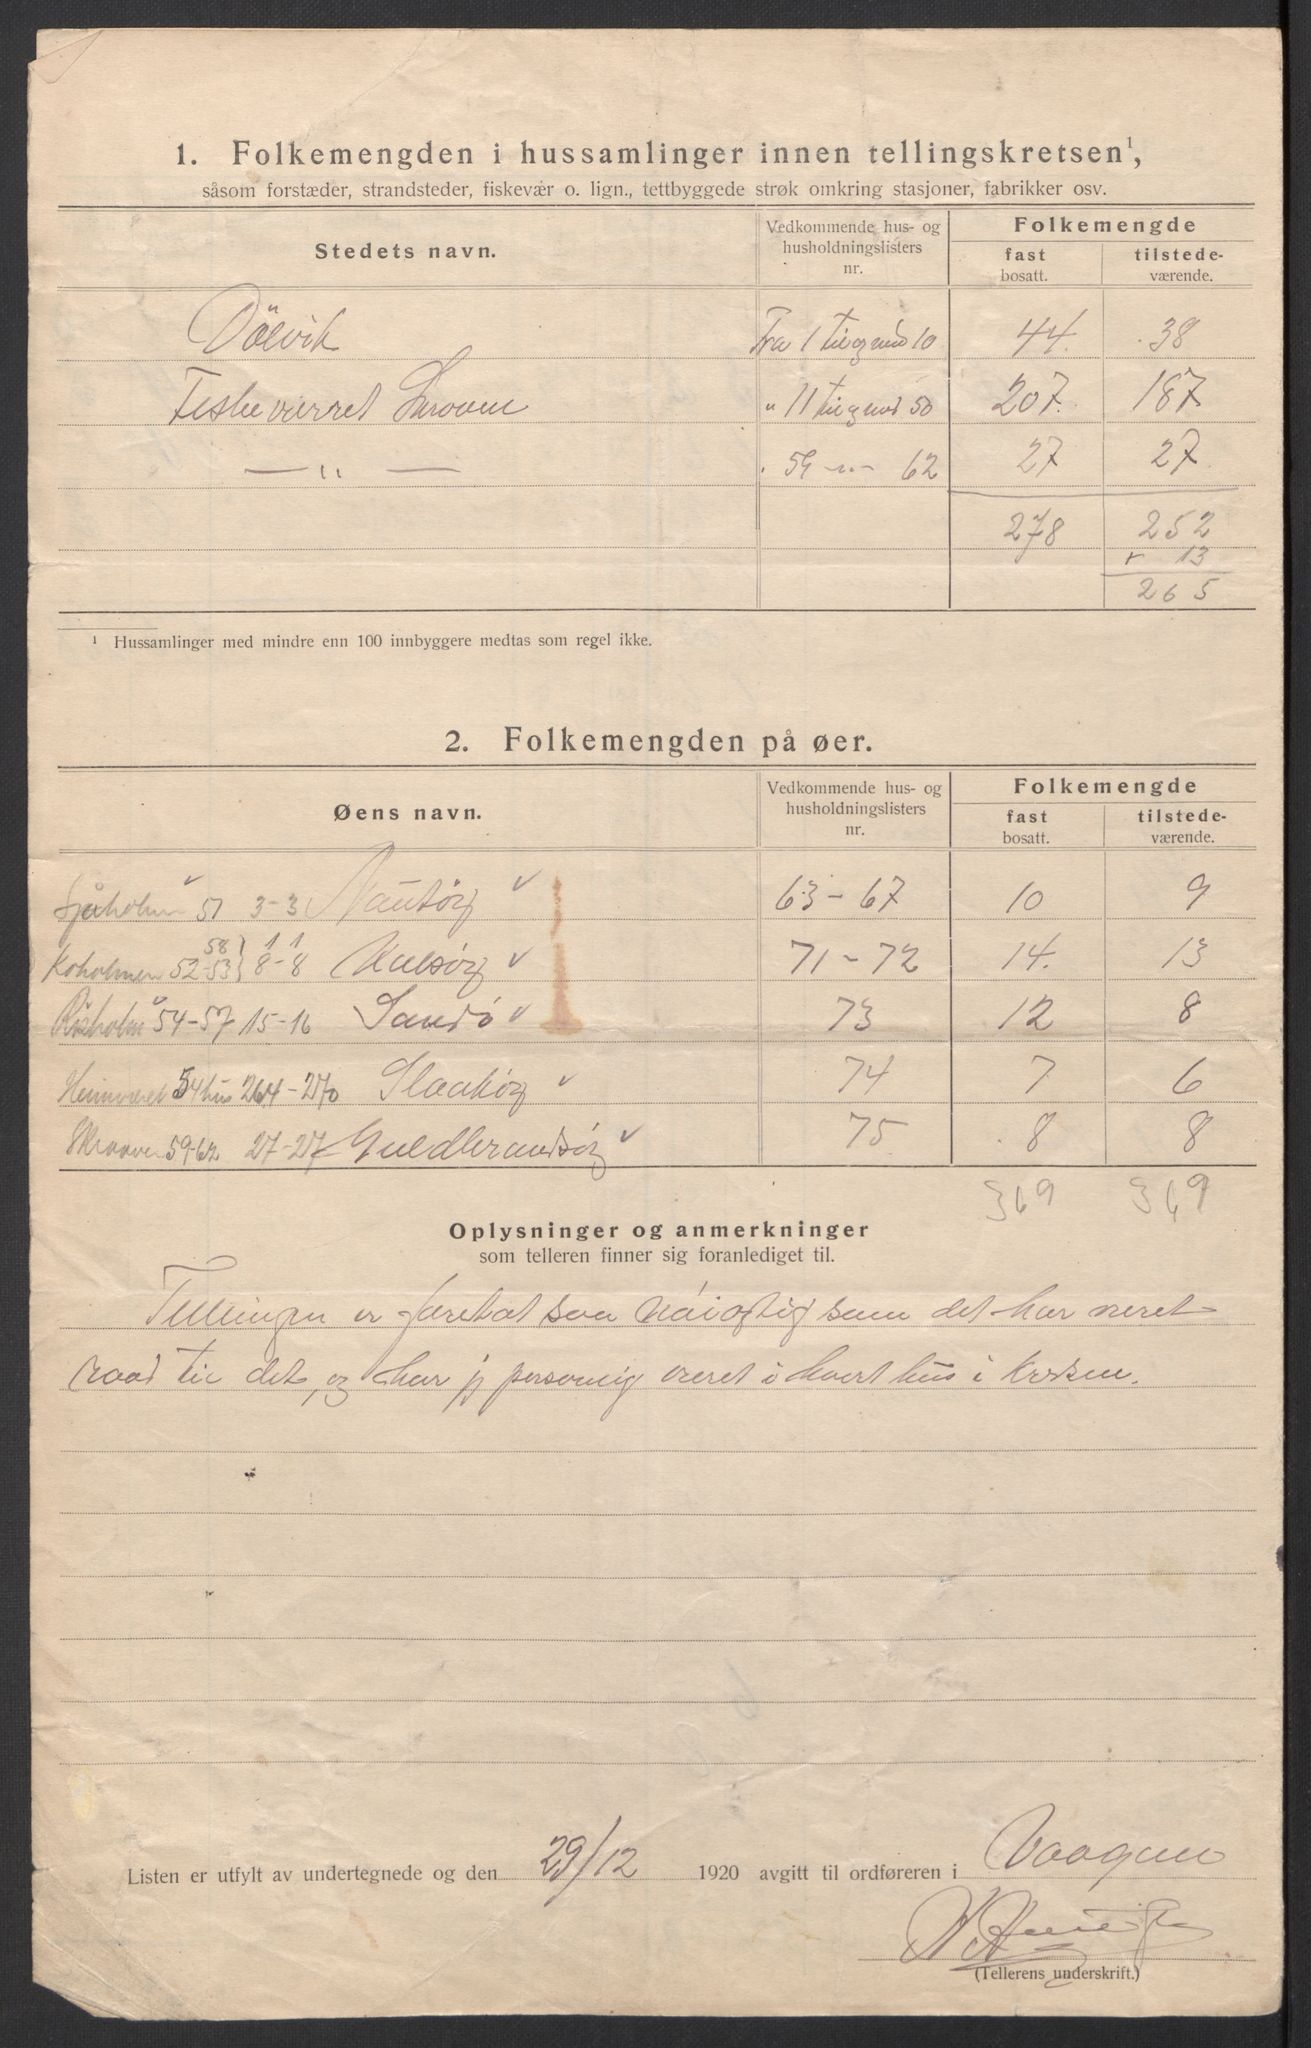 1. Folkemengden i hussamlinger innen tellingskretsen¹,
såsom forstæder, strandsteder, fiskevær o. lign., tettbyggede strøk omkring stasjoner, fabrikker osv.
Stedets navn. Vedkommende hus- og husholdningslisters nr. Folkemengde
fast bosatt. tilstedeværende.
Fra 1 til og med 10 44. 38
" 11 til og med 50 207. 187
— " — 59 -"- 62 27 27
278 252
+ 13
265
¹ Hussamlinger med mindre enn 100 innbyggere medtas som regel ikke.
2. Folkemengden på øer.
Øens navn. Vedkommende hus- og husholdningslisters nr. Folkemengde
fast bosatt. tilstedeværende.
51 3-3 63-67 10 9
58 1 1
Koholmen 52-53 8-8 71-72 14. 13
Risholm 54-57 15-16 Sandø 73 12 8
54 hus 264-270 74 7 6
Skraaven 59-62 27-27 Guldbrandsøy 75 8 8
369 369
Oplysninger og anmerkninger
som telleren finner sig foranlediget til.
Tellingen er foretat saa nøiagtig som det har været
raad til det, og har jeg personlig været i hvert hus i kredsen.
Listen er utfylt av undertegnede og den 29/12 1920 avgitt til ordføreren i Vaagan
(Tellerens underskrift.)